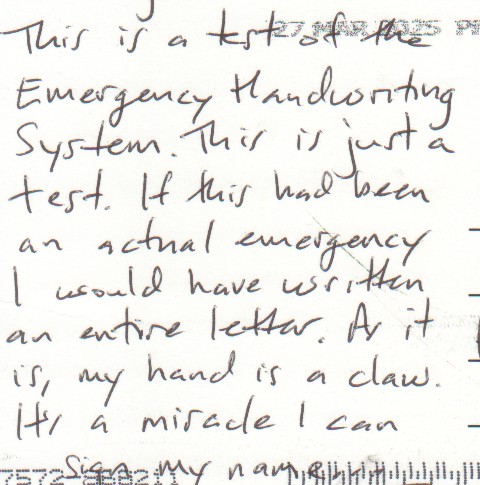 This is a test of the
27 MAR 2025 PM
Emergency Handwriting
System. This is just a
test. If this had been
an actual emergency
I would have written
an entire letter. As it
is, my hand is a claw.
It's a miracle I can
sign my name